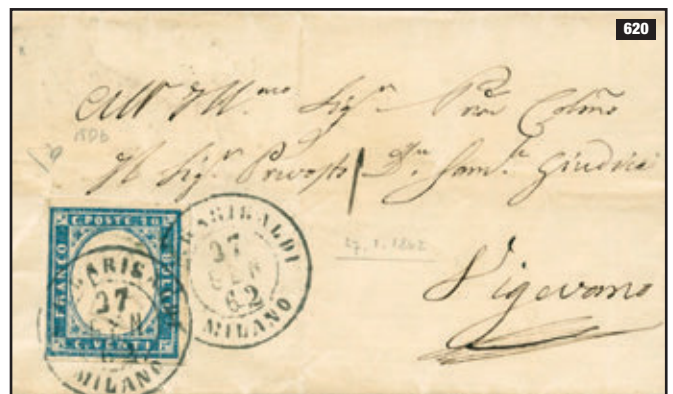 620
All' Ill.mo Sig.r Pron Colmo
15Db
Il Sig.r Prevosto D.n Giudici
27.1.1862
Vigevano
C. POSTE 20
FRANCO
BOLLO
C. VENTI
GARIBALDI
27
GEN
62
MILANO
GARIBALDI
27
GEN
62
MILANO